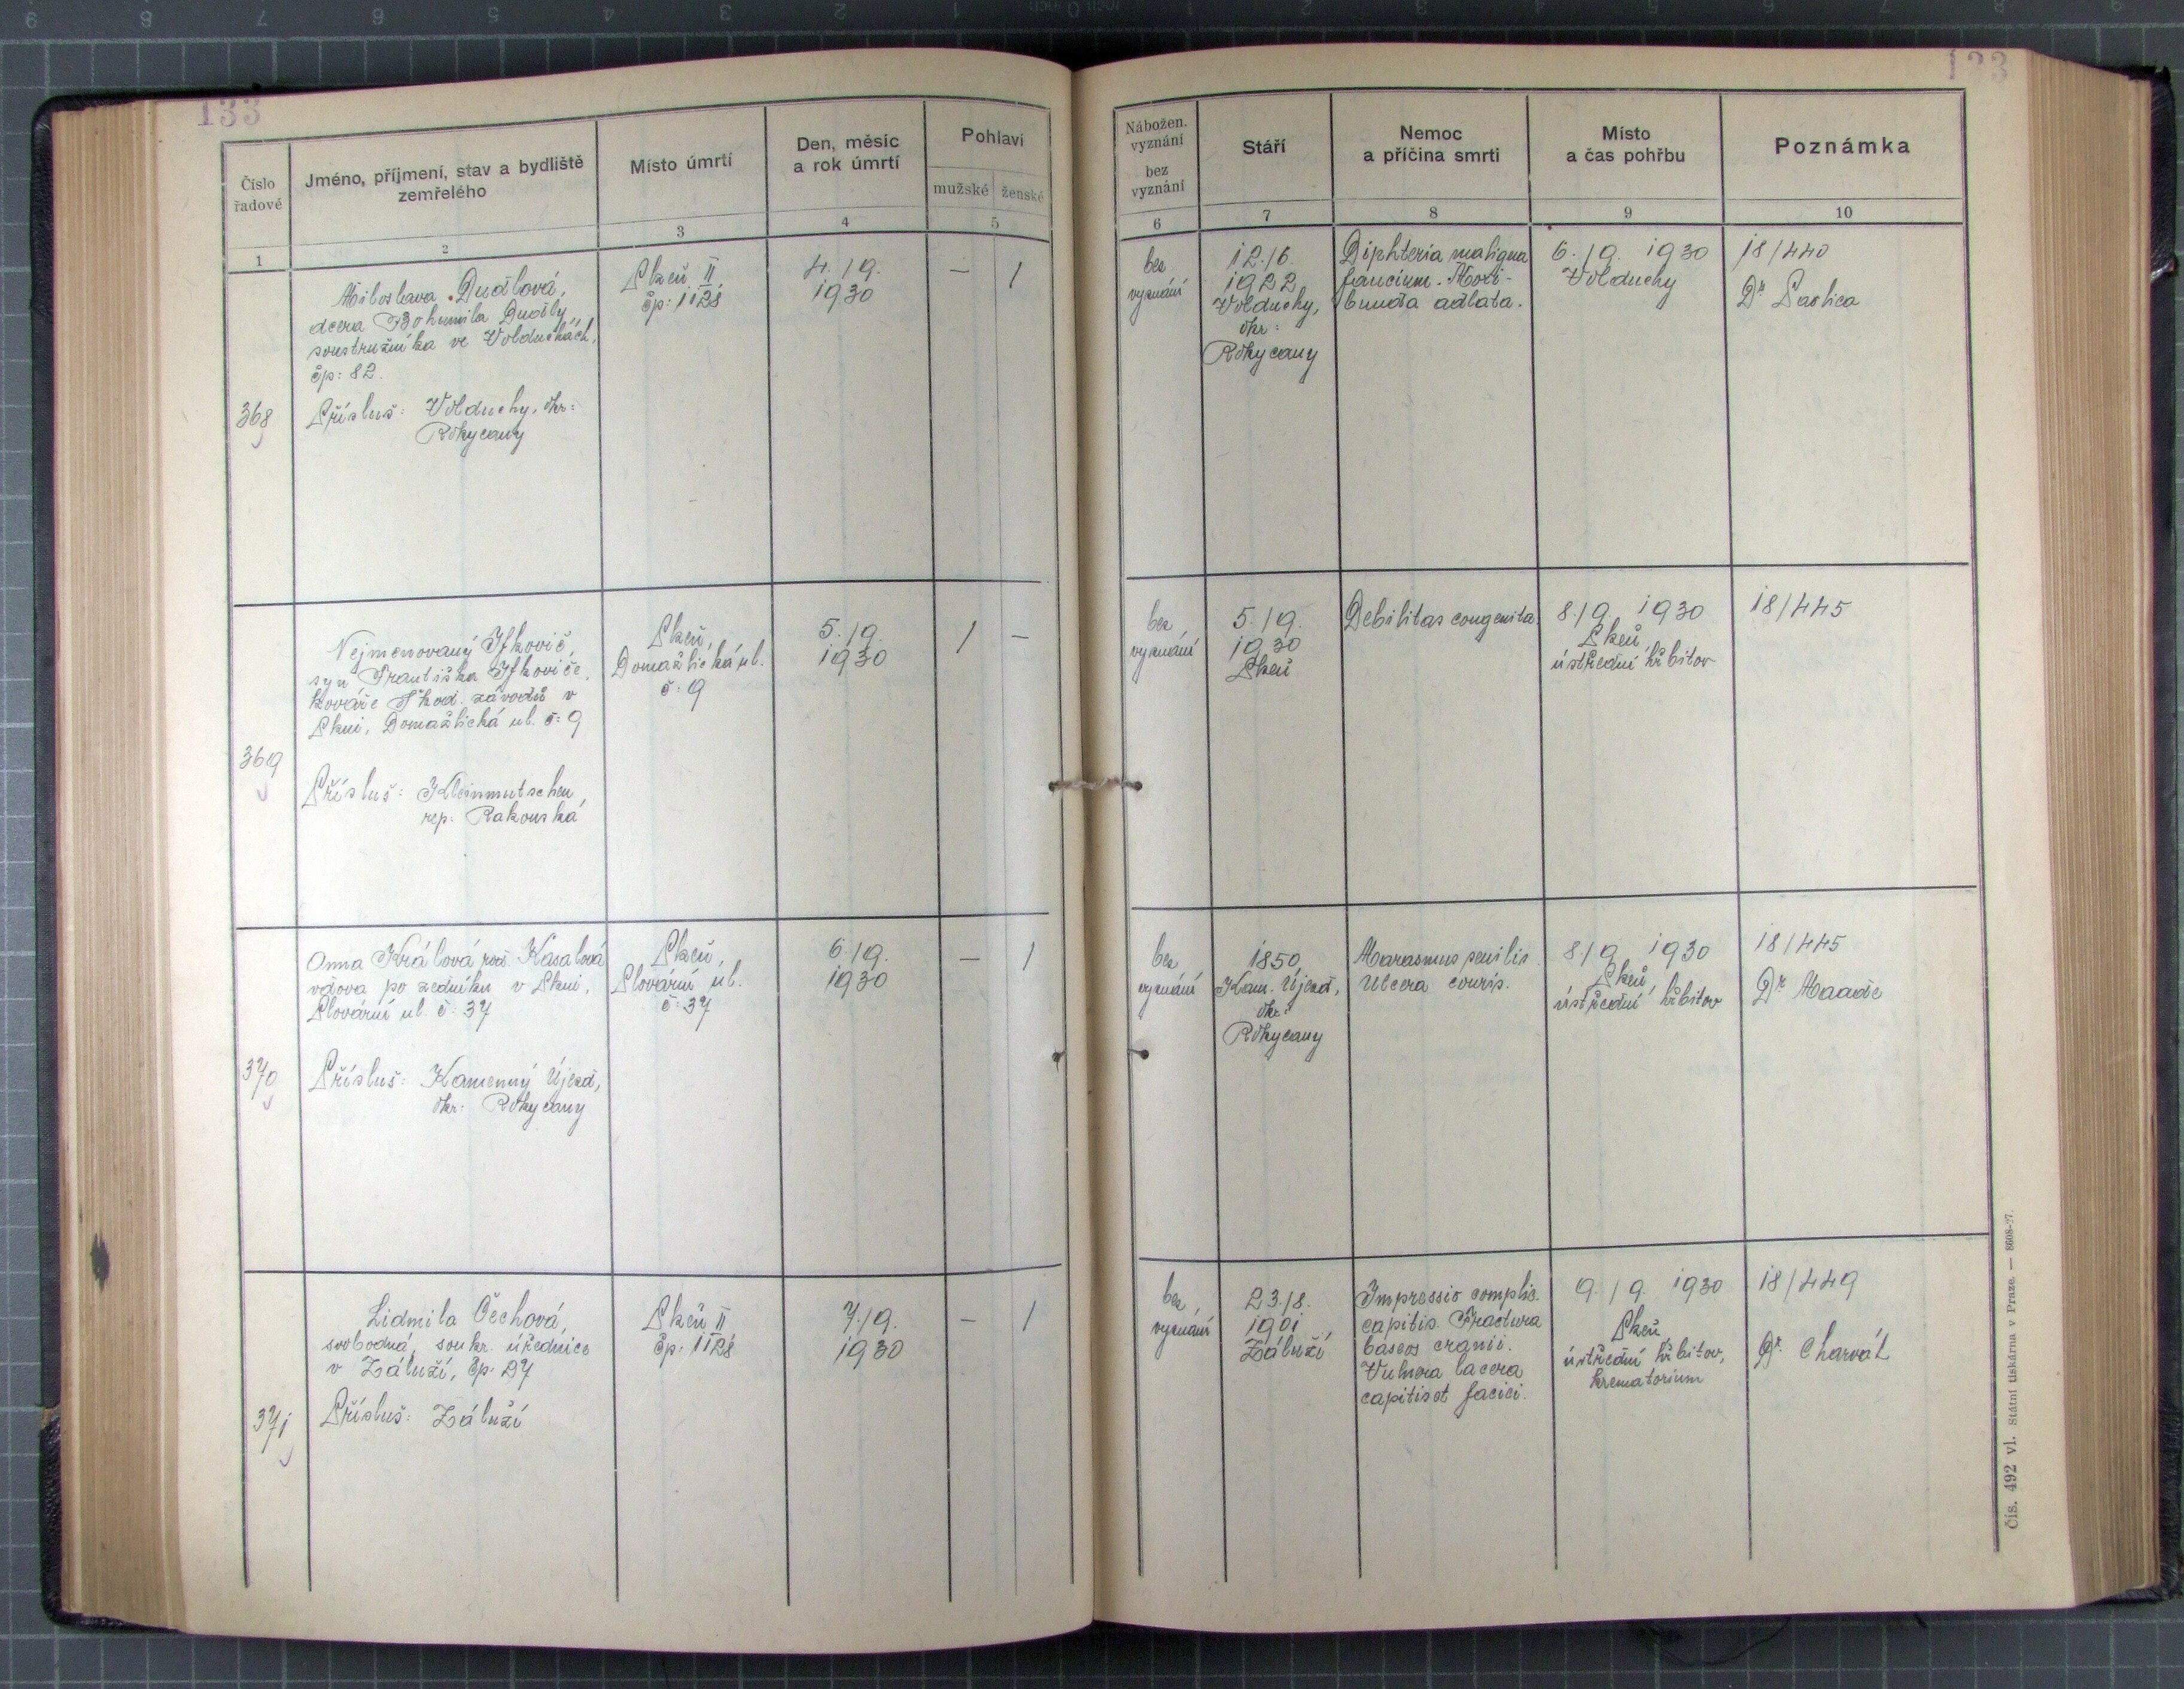 133
133
Číslo řadové
Jméno, příjmení, stav a bydliště zemřelého
Místo úmrtí
Den, měsíc a rok úmrtí
Pohlaví
mužské
ženské
Nábožen. vyznání
bez vyznání
Stáří
Nemoc a příčina smrti
Místo a čas pohřbu
Poznámka
1
2
3
4
5
6
7
8
9
10
368
Miloslava Dudlová,
dcera Bohumila Dudly,
soustružníka ve Volduchách,
čp: 82.
Přísluš: Volduchy, okr:
Rokycany
Plzeň II
čp: 1128
4./9.
1930
—
1
bez
vyznání
12./6.
1922
Volduchy,
okr:
Rokycany
Diphteria maligna
faucium. Mori-
bunda adlata.
6./9. 1930
Volduchy
18/440
Dr
369
Nejmenovaný Ifkovič,
syn Františka Ifkoviče,
kováře Škod. závodů v
Plzni, Domažlická ul. č: 9
Přísluš: Kleinmutschen,
rep: Rakouská
Plzeň,
Domažlická ul.
č: 9
5./9.
1930
1
—
bez
vyznání
5./9.
1930
Plzeň
Debilitas congenita
8./9. 1930
Plzeň,
ústřední hřbitov
18/445
370
Anna Králová roz. Kasalová
vdova po zedníku v Plzni,
Plovární ul. č: 37
Přísluš: Kamenný Újezd,
okr: Rokycany
Plzeň,
Plovární ul.
č: 37
6./9.
1930
—
1
bez
vyznání
1850
Kam. Újezd,
okr:
Rokycany
Marasmus senilis
Ulcera cruris.
8/9 1930
Plzeň,
ústřední hřbitov
18/445
Dr
371
Lidmila Čechová,
svobodná, soukr. úřednice
v Záluží, čp. 27
Přísluš: Záluží
Plzeň II
čp: 1128
7./9.
1930
—
1
bez
vyznání
23./8.
1901
Záluží
Impressio complic.
capitis. Fractura
baseos cranii.
Vulnera lacera
capitis et faciei.
9./9. 1930
Plzeň
ústřední hřbitov,
krematorium
18/449
Dr Charvát
Čís. 492 vl. Státní tiskárna v Praze. — 8608-27.